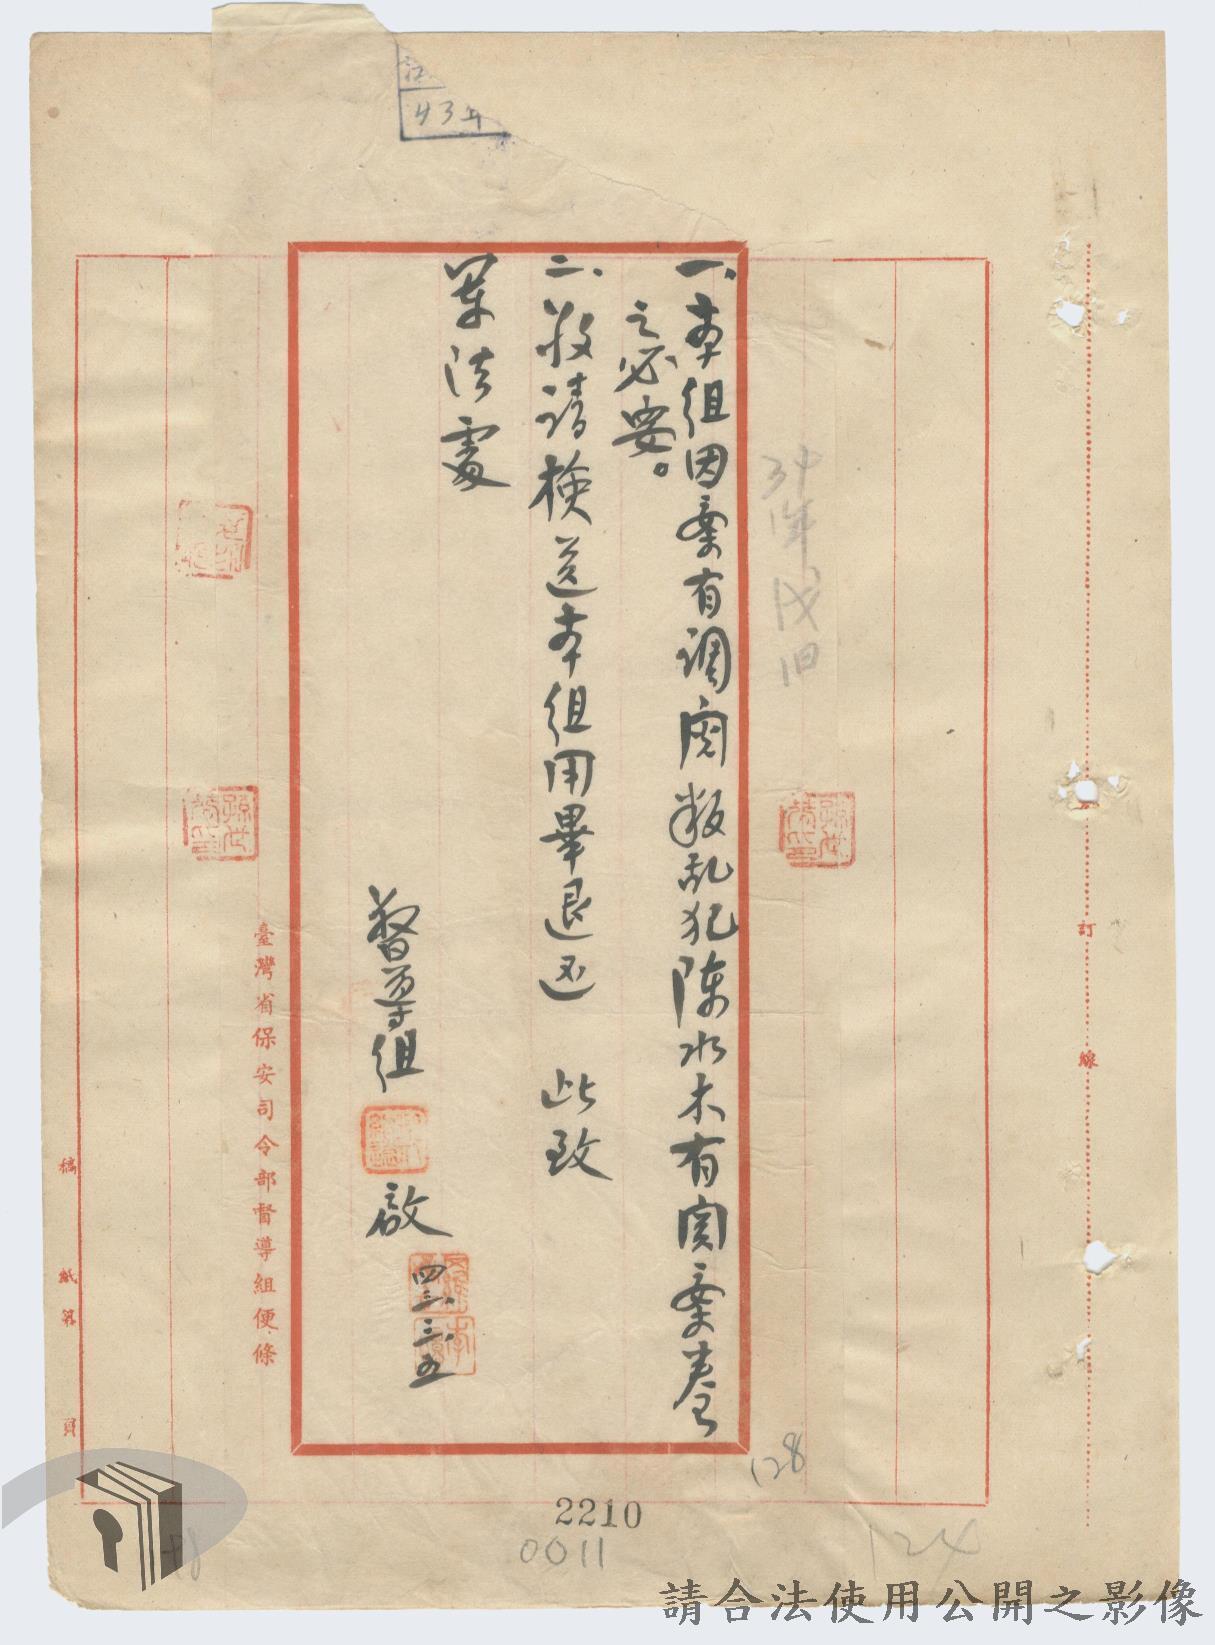 43年
一、本组因案有调阅叛乱犯陈水木有関案卷
之必要。
二、敬请检送本组用畢退还 此致
軍法處
督導组 啟
四三、三、五
臺灣省保安司令部督導組便條
訂
線
稿
紙第
頁
128
2210
0011
124
請合法使用公開之影像